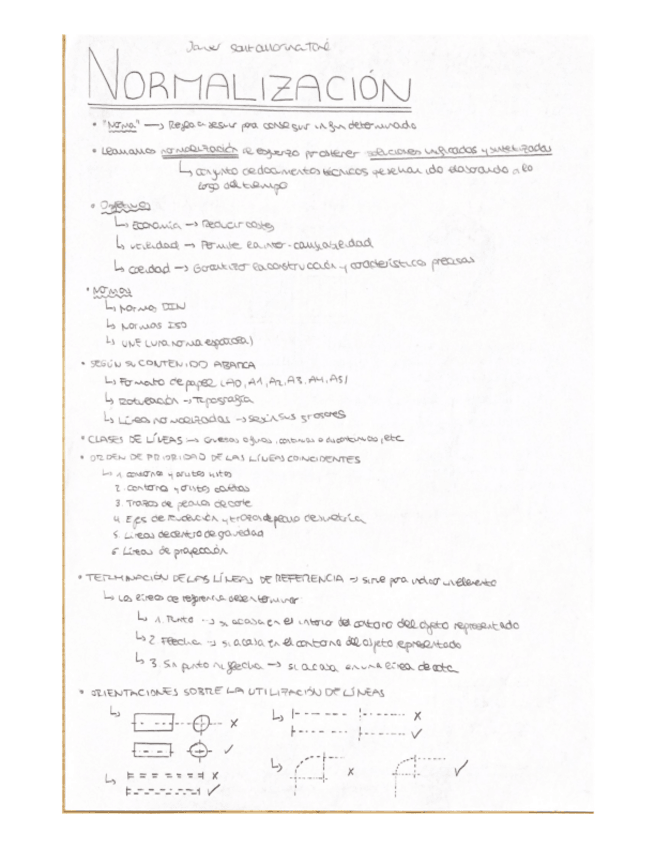 Javier Santallorina Toré
NORMALIZACIÓN
• "Norma" → Regla a seguir para conseguir un fin determinado
• Llamamos normalización al esfuerzo por obtener soluciones unificadas y sintetizadas
↳ conjunto de documentos técnicos que se han ido elaborando a lo
largo del tiempo
• Objetivos
↳ Economía → Reducir costes
↳ utilidad → Permite la inter-cambiabilidad
↳ calidad → Garantizar la construcción y características precisas
• Normas
↳ Normas DIN
↳ Normas ISO
↳ UNE (una norma española)
• SEGÚN SU CONTENIDO ABARCA
↳ Formato de papel (A0, A1, A2, A3, A4, A5)
↳ Rotulación → Tipografía
↳ Líneas normalizadas → según sus grosores
• CLASES DE LÍNEAS → Gruesas o finas, continuas o discontinuas, etc
• ORDEN DE PRIORIDAD DE LAS LÍNEAS COINCIDENTES
↳ 1. contornos y aristas vistos
2. Contornos y aristas ocultas
3. Trazos de planos de corte
4. Ejes de revolución y trazas de plano de simetría
5. Líneas de centro de gravedad
6. Líneas de proyección
• TERMINACIÓN DE LAS LÍNEAS DE REFERENCIA → sirve para indicar un elemento
↳ Las líneas de referencia deben terminar
↳ 1. Punto → si acaba en el interior del contorno del objeto representado
↳ 2 Flecha → si acaba en el contorno del objeto representado
↳ 3 Sin punto ni flecha → si acaba en una línea de cota
• ORIENTACIONES SOBRE LA UTILIZACIÓN DE LÍNEAS